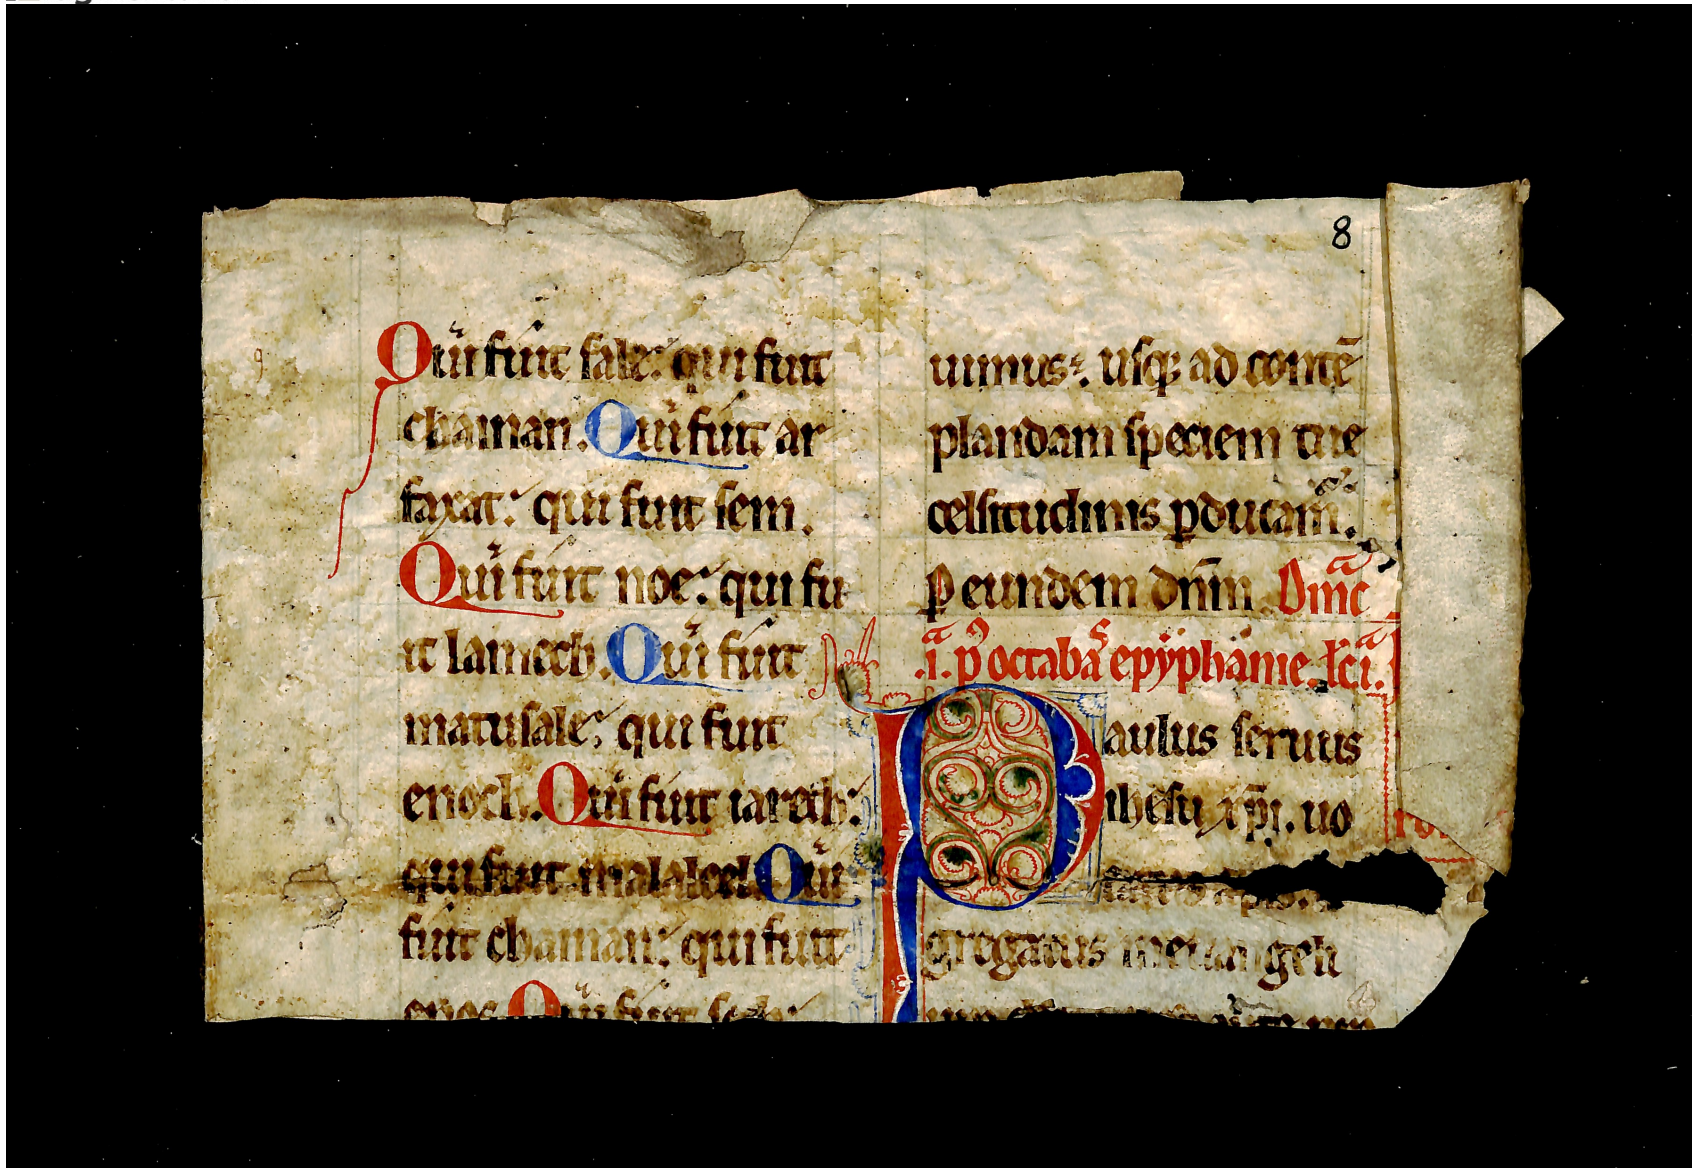 8
Qui fuit sale: qui fuit
chainan. Qui fuit ar
faxat: qui fuit sem.
Qui fuit noe: qui fu
it lamech. Qui fuit
matusale: qui fuit
enoch. Qui fuit iareth:
qui fuit malaleel Qui
fuit chainan: qui fuit
enos Qui fuit seth:
uimus: usq; ad contē
plandam speciem tue
celsitudinis ꝑducam̃.
ꝑ eundem dn̄m. Dm̄c
.i. p̄ octabã epyphanie. lc̄i.
Paulus seruus
ihesu xp̄i. uo
gregatus in euangeli